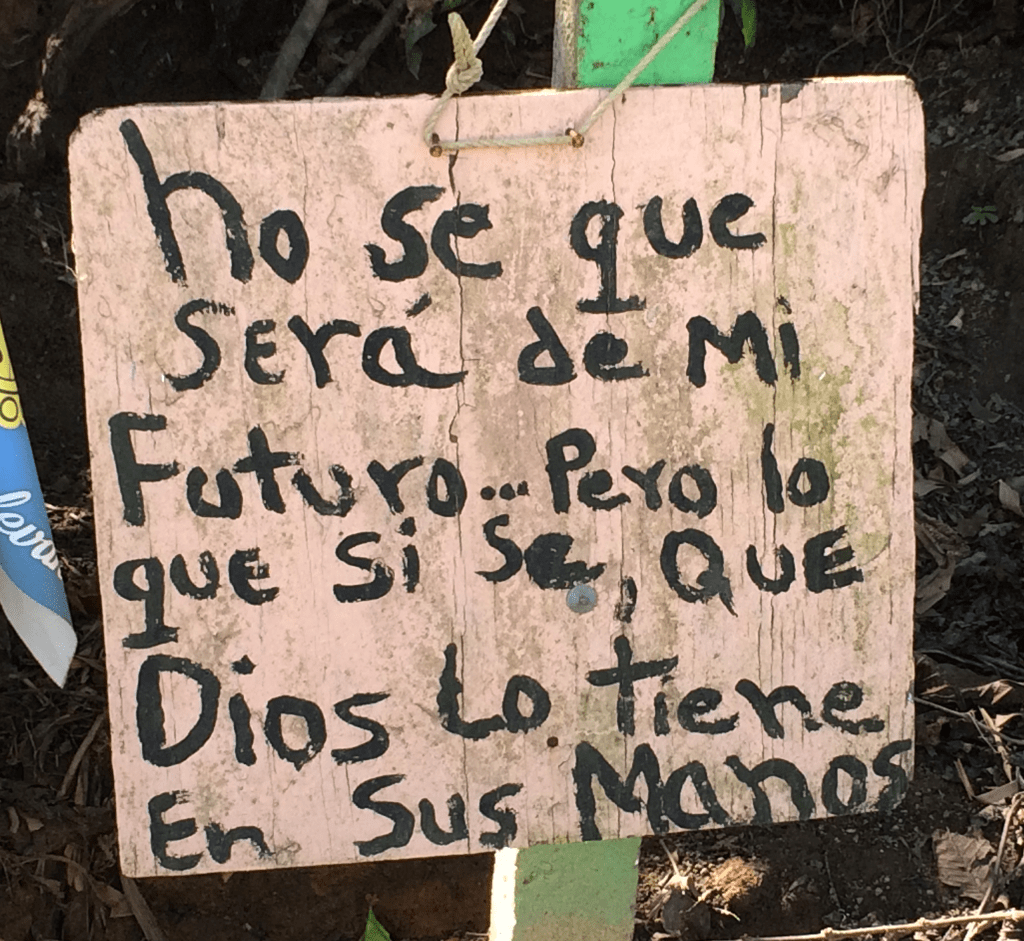 no se que
será de Mi
Futuro... Pero lo
que si se, QUE
Dios Lo tiene
En Sus Manos